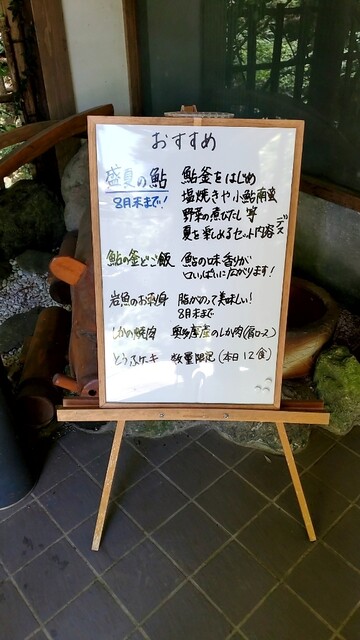 おすすめ
盛夏の鮎 鮎釜をはじめ
8月末まで! 塩焼きや小鮎南蛮
野菜の煮びたし等
夏を楽しめるセット内容デス
鮎の釜どご飯 鮎の味香りが
口いっぱいに広がります!
岩魚のお刺身 脂がのって美味しい!
8月末まで
しかの焼肉 奥多摩産のしか肉(肩ロース)
とうふケーキ 数量限定(本日12食)